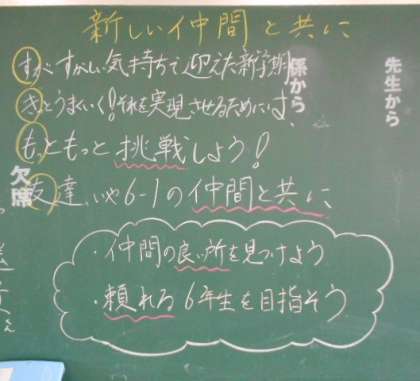 新しい仲間と共に
すがすがしい気持ちで迎えた新学期
きとうまくいく!それを実現させるためには、
もっともっと挑戦しよう!
友達、いや6-1の仲間と共に
・仲間の良い所を見つけよう
・頼れる6年生を目指そう
係から
先生から
欠席